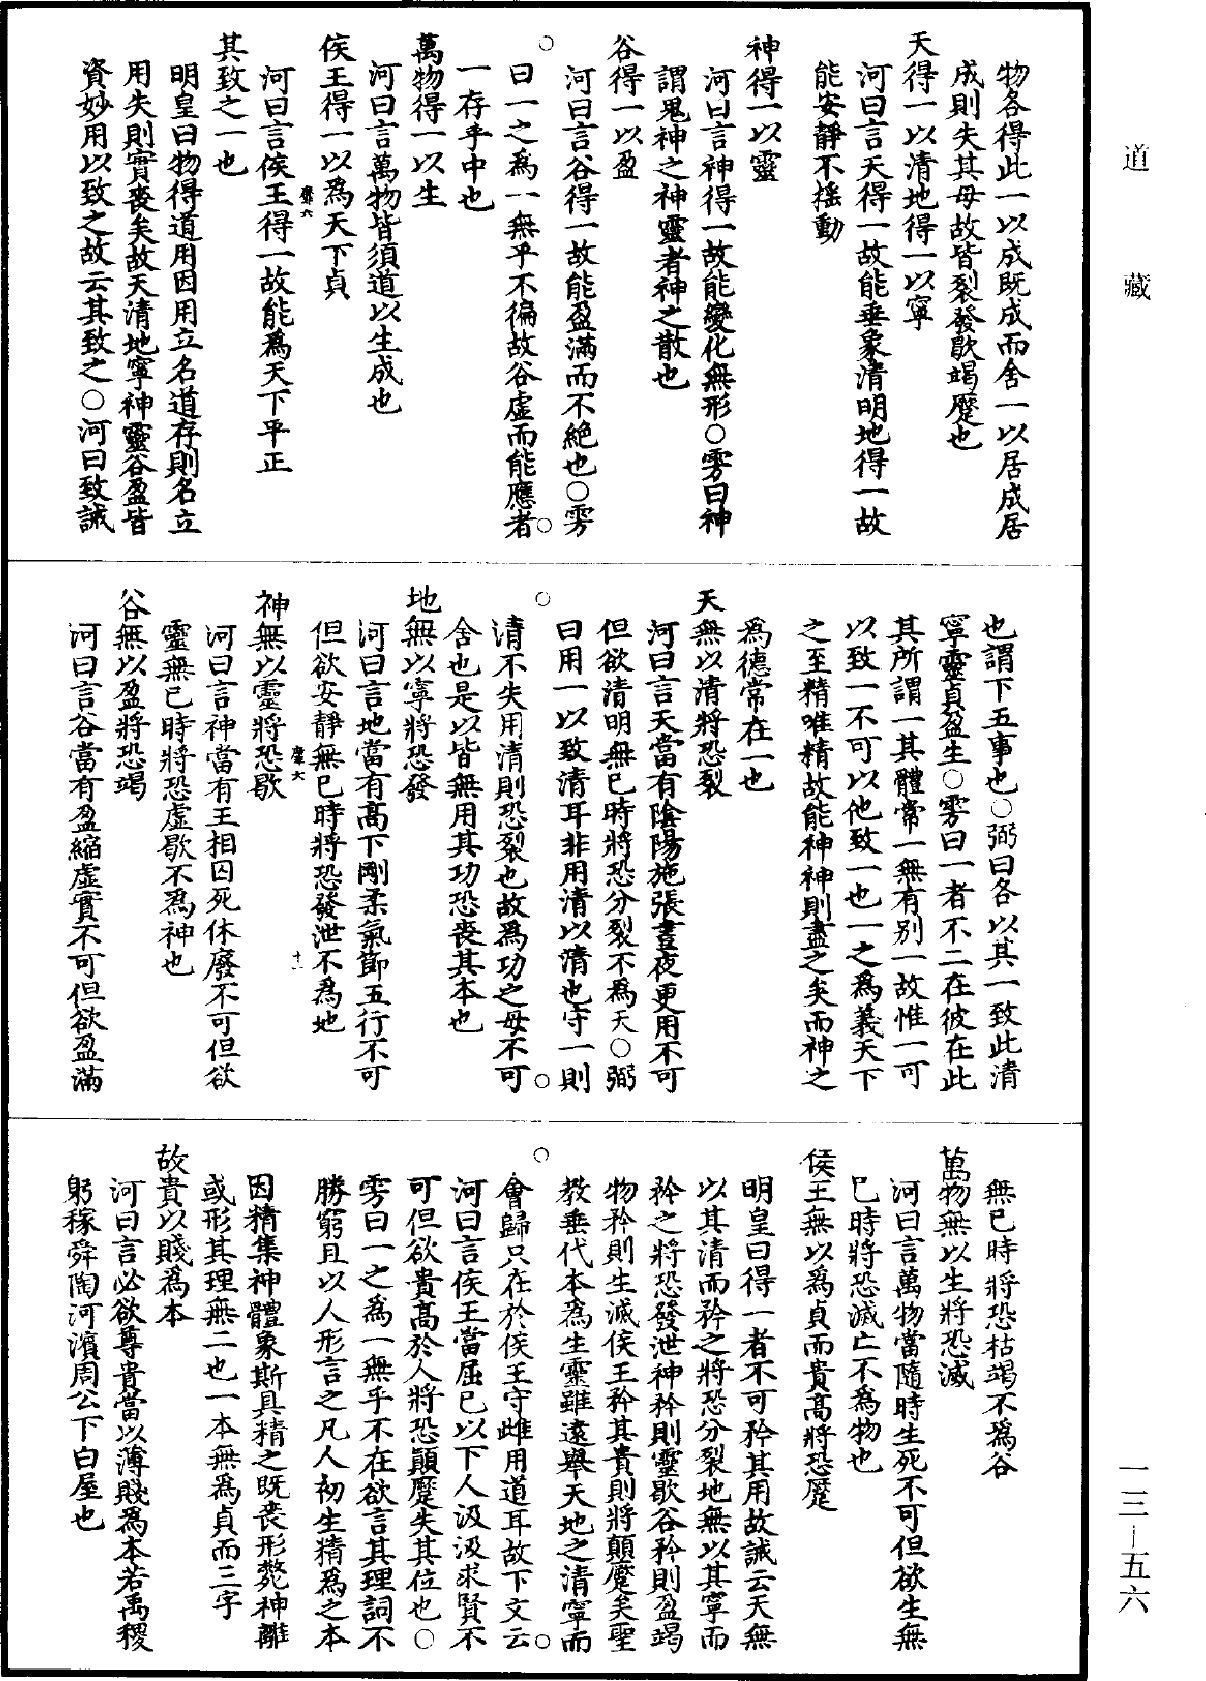 道藏
物各得此一以成既成而舍一以居成居
成則失其母故皆裂發歇竭蹷也
天得一以清地得一以寧
河曰言天得一故能垂象清明地得一故
能安靜不揺動
神得一以靈
河曰言神得一故能變化無形○雱曰神
謂鬼神之神靈者神之散也
谷得一以盈
河曰言谷得一故能盈滿而不絶也○雱
曰一之爲一無乎不徧故谷虛而能應者
一存乎中也
萬物得一以生
河曰言萬物皆須道以生成也
侯王得一以爲天下貞
河曰言侯王得一故能爲天下平正
其致之一也
明皇曰物得道用因用立名道存則名立
用失則實喪矣故天清地寧神靈谷盈皆
資妙用以致之故云其致之○河曰致誡
也謂下五事也○弼曰各以其一致此清
寧靈貞盈生○雱曰一者不二在彼在此
其所謂一其體常一無有别一故惟一可
以致一不可以他致一也一之爲義天下
之至精唯精故能神神則盡之矣而神之
爲德常在一也
天無以清將恐裂
河曰言天當有陰陽施張晝夜更用不可
但欲清明無已時將恐分裂不爲天○弼
曰用一以致清耳非用清以清也守一則
清不失用清則恐裂也故爲功之母不可
舍也是以皆無用其功恐喪其本也
地無以寧將恐發
河曰言地當有高下剛柔氣節五行不可
但欲安靜無已時將恐發泄不爲地
十一
神無以靈將恐歇
河曰言神當有王相囚死休廢不可但欲
靈無已時將恐虛歇不爲神也
谷無以盈將恐竭
河曰言谷當有盈縮虛實不可但欲盈滿
無已時將恐枯竭不爲谷
萬物無以生將恐滅
河曰言萬物當隨時生死不可但欲生無
已時將恐滅亡不爲物也
侯王無以爲貞而貴高將恐蹷
明皇曰得一者不可矜其用故誡云天無
以其清而矜之將恐分裂地無以其寧而
矜之將恐發泄神矜則靈歇谷矜則盈竭
物矜則生滅侯王矜其貴則將顛蹷矣聖
教垂代本爲生靈雖遠舉天地之清寧而
會歸只在於侯王守雌用道耳故下文云
河曰言侯王當屈已以下人汲汲求賢不
可但欲貴高於人將恐顛蹷失其位也○
雱曰一之爲一無乎不在欲言其理詞不
勝窮且以人形言之凡人初生精爲之本
因精集神體象斯具精之既喪形斃神離
或形其理無二也一本無爲貞而三字
故貴以賤爲本
河曰言必欲尊貴當以薄賤爲本若禹稷
躬稼舜陶河濱周公下白屋也
一三—五六